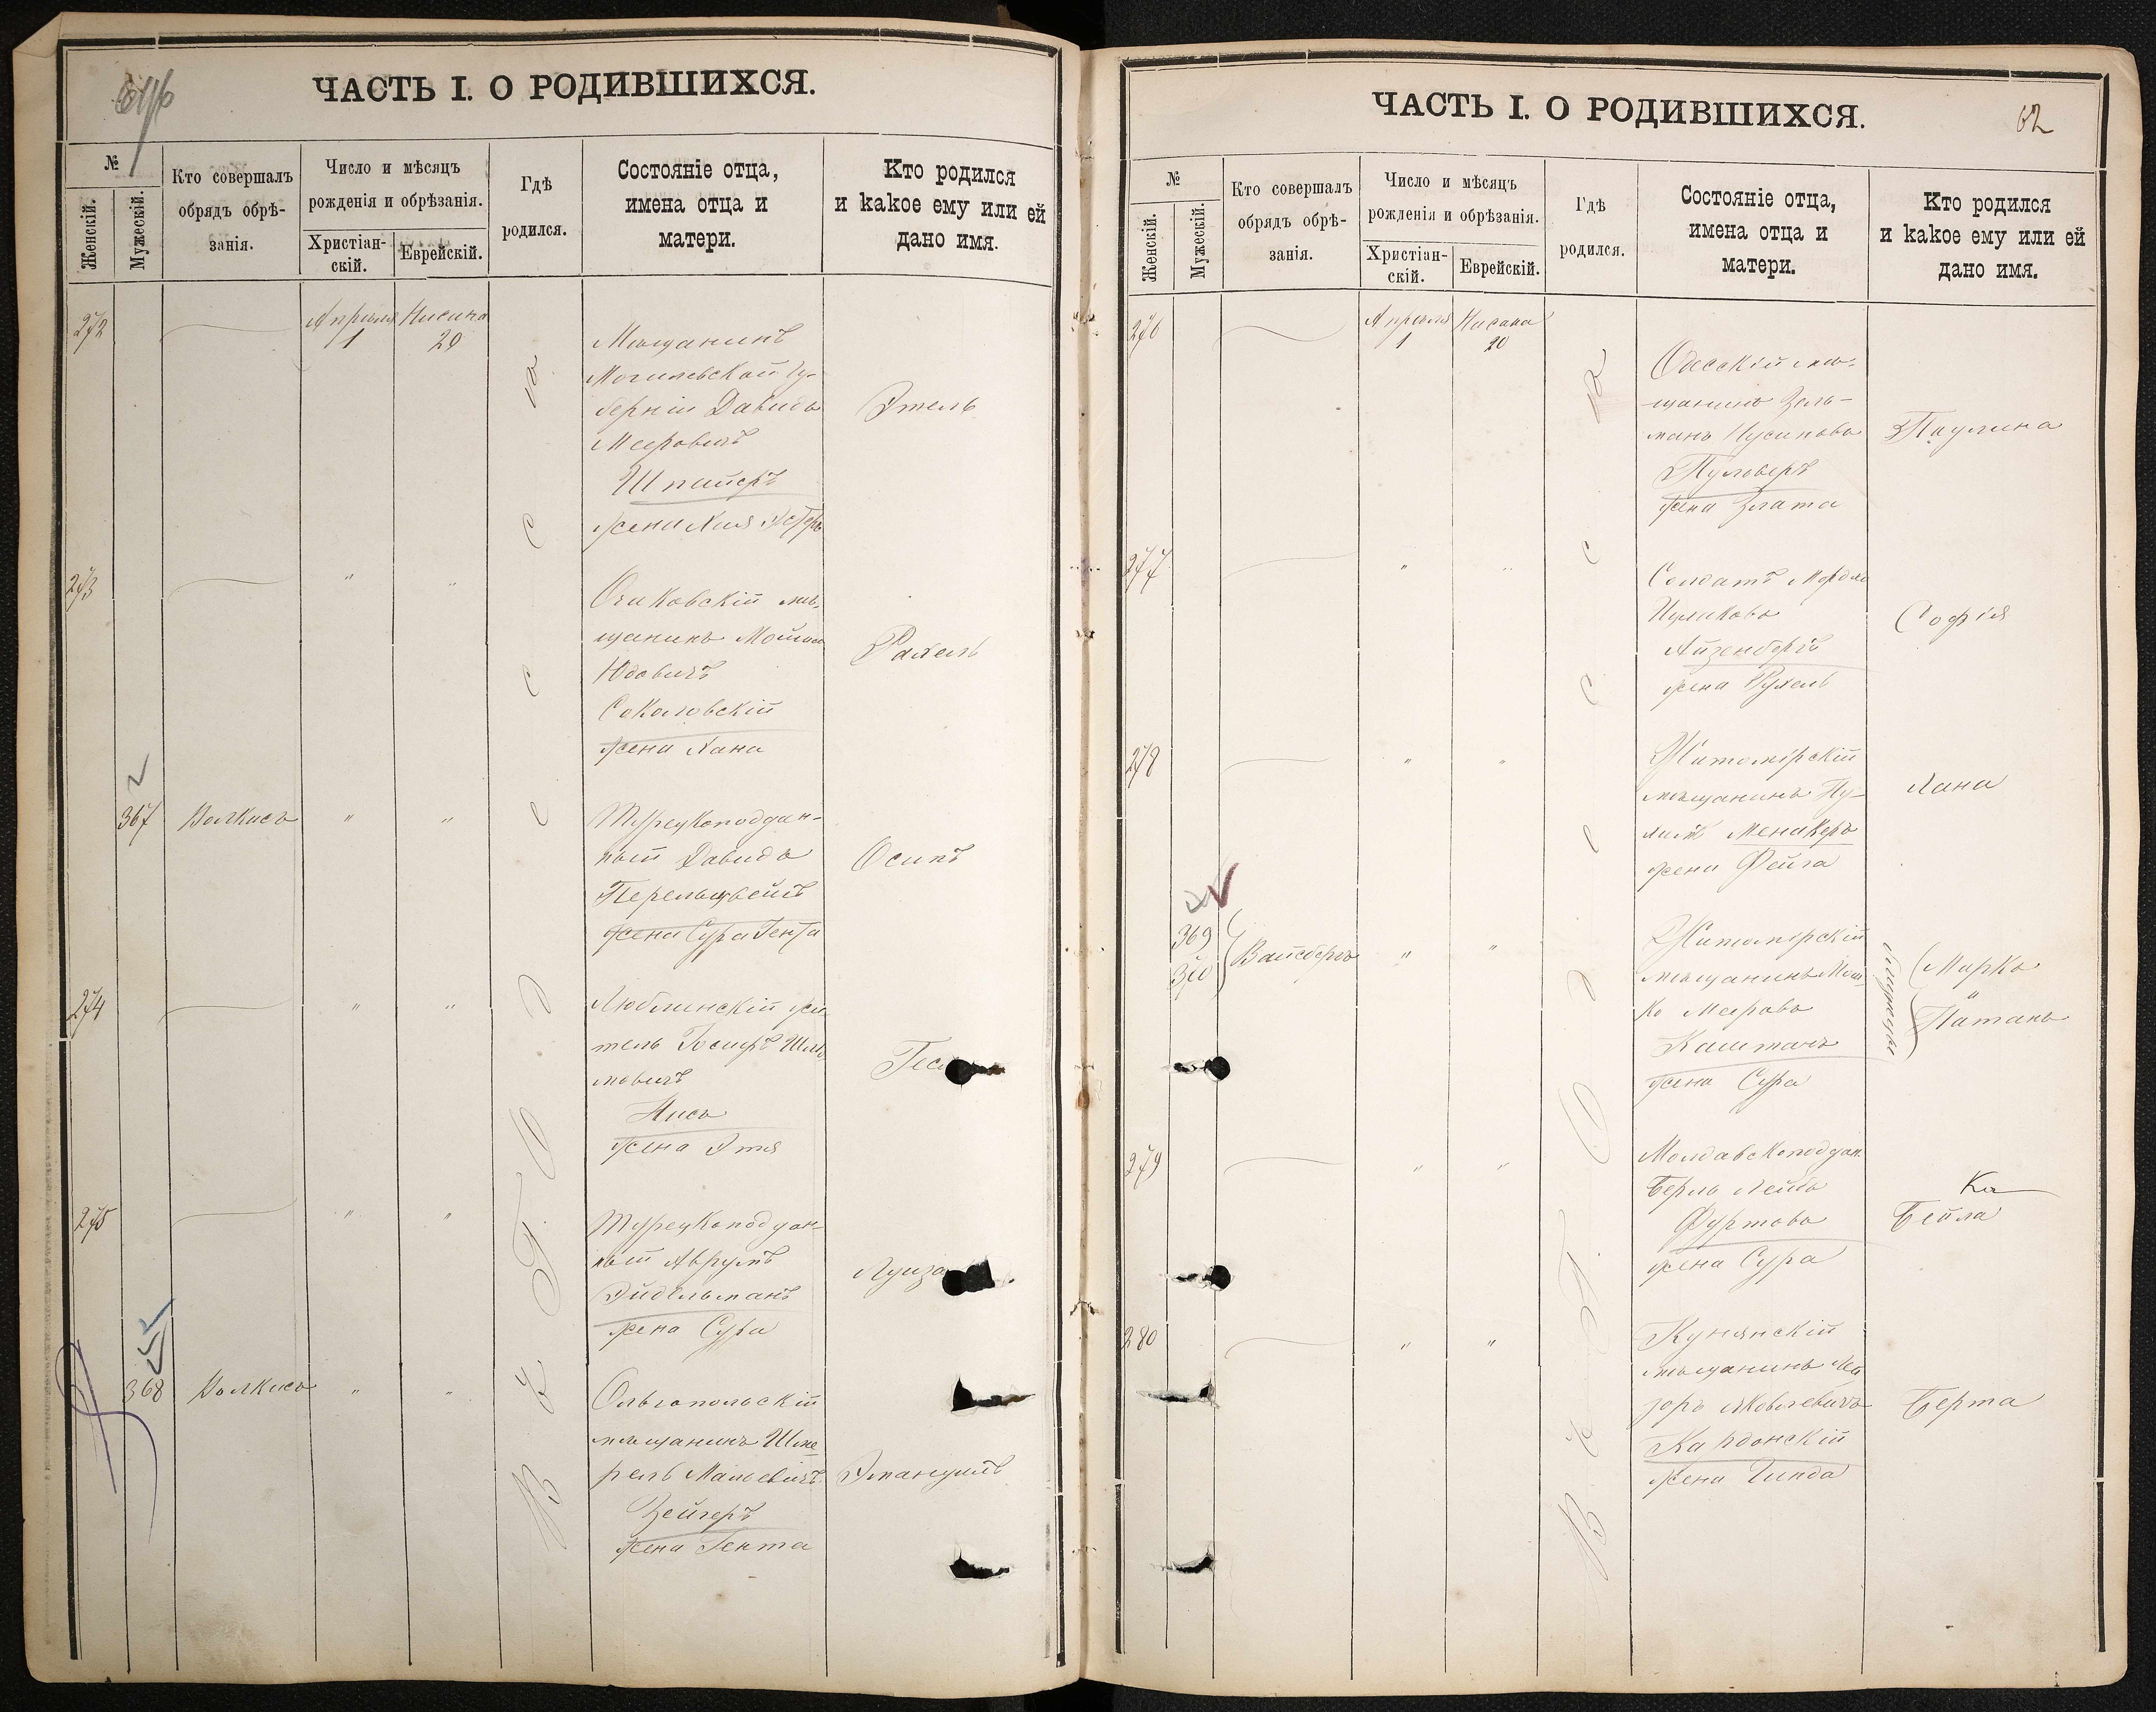 ЧАСТЬ I. О РОДИВШИХСЯ.
№
Женскій.
Мужескій.
Кто совершалъ
обрядъ обрѣ-
занія.
Число и мѣсяцъ
рожденія и обрѣзанія.
Христіан-
скій.
Еврейскій.
Гдѣ
родился.
Состояніе отца,
имена отца и
матери.
Кто родился
и какое ему или ей
дано имя.
272
Апрѣля
1
Нисана
20
Мѣщанинъ
Могилевской гу-
берніи Давидъ
Мееровичъ
Шпайеръ
жена Хая Эстеръ
Этель
273
" "
Очаковскій мѣ-
щанинъ
Юдовичъ
Сокаловскій
жена Хана
Рахель
367
Волкисъ
" "
Турецкоподдан-
ный Давидъ
Перельцвейгъ
жена Сура Гента
Осипъ
274
" "
Люблинскій жи
тель Іосифъ Шло
мовичъ
жена Этя
275
" "
Турецкоподдан-
ный Аврумъ
Эйдельманъ
жена Сура
Луиза
368
Волкисъ
" "
Ольгопольскій
мѣщанинъ Шме
рель
Зейгеръ
жена Гента
Эмануилъ
В Ъ О Д Е С С Ѣ
ЧАСТЬ I. О РОДИВШИХСЯ.
62
№
Женскій.
Мужескій.
Кто совершалъ
обрядъ обрѣ-
занія.
Число и мѣсяцъ
рожденія и обрѣзанія.
Христіан-
скій.
Еврейскій.
Гдѣ
родился.
Состояніе отца,
имена отца и
матери.
Кто родился
и какое ему или ей
дано имя.
276
Апрѣля
1
Нисана
20
Одесскій мѣ-
щанинъ Зель-
манъ Нусиновъ
Пуловеръ
жена Злата
Паулина
277
" "
Солдатъ Мордко
Ицыковъ
Айзенбергъ
жена Рухель
Софія
278
" "
Житомірскій
мѣщанинъ
Менакеръ
жена Фейга
Хана
369
370
Вайсбергъ
" "
Житомірскій
мѣщанинъ Мош
ко Мееровъ
Каштанъ
жена Сура
Марко
и
Натанъ
279
" "
Молдавскоподдан.
Берль Лейбъ
Фуртовъ
жена Сура
Ка
Бейла
280
" "
мѣщанинъ Лей
зоръ Яковлевичъ
жена Гинда
Берта